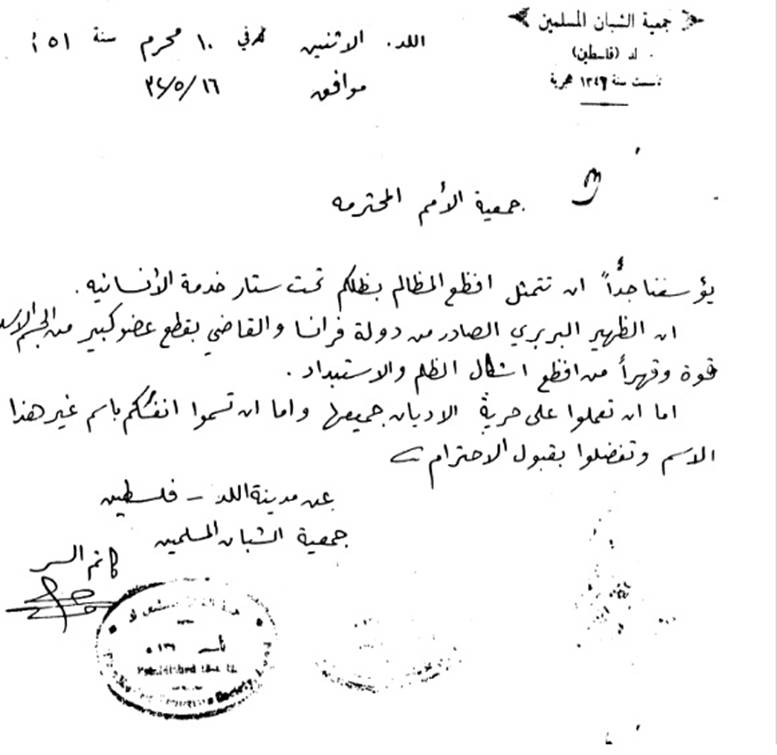 جمعية الشبان المسلمين
لد (فلسطين)
تأسست سنة ١٣٤٦ هجرية
اللد. الاثنين في ١٠ محرم سنة ٣٥١
موافق ٣٢/٥/١٦
جمعية الأمم المحترمه
يؤسفنا جداً ان تتمثل افظع المظالم بظلكم تحت ستار خدمة الأنسانيه.
ان الظهير البربري الصادر من دولة فرانسا والقاضي بقطع عضو كبير من الجسم
قوة وقهراً من افظع اشكال الظلم والاستبداد.
اما ان تعملوا على حرية الاديان جميعها واما ان تسموا انفسكم باسم غير هذا
الاسم وتفضلوا بقبول الاحترام
عن مدينة اللد - فلسطين
جمعية الشبان المسلمين
كاتم السر
Established
Society